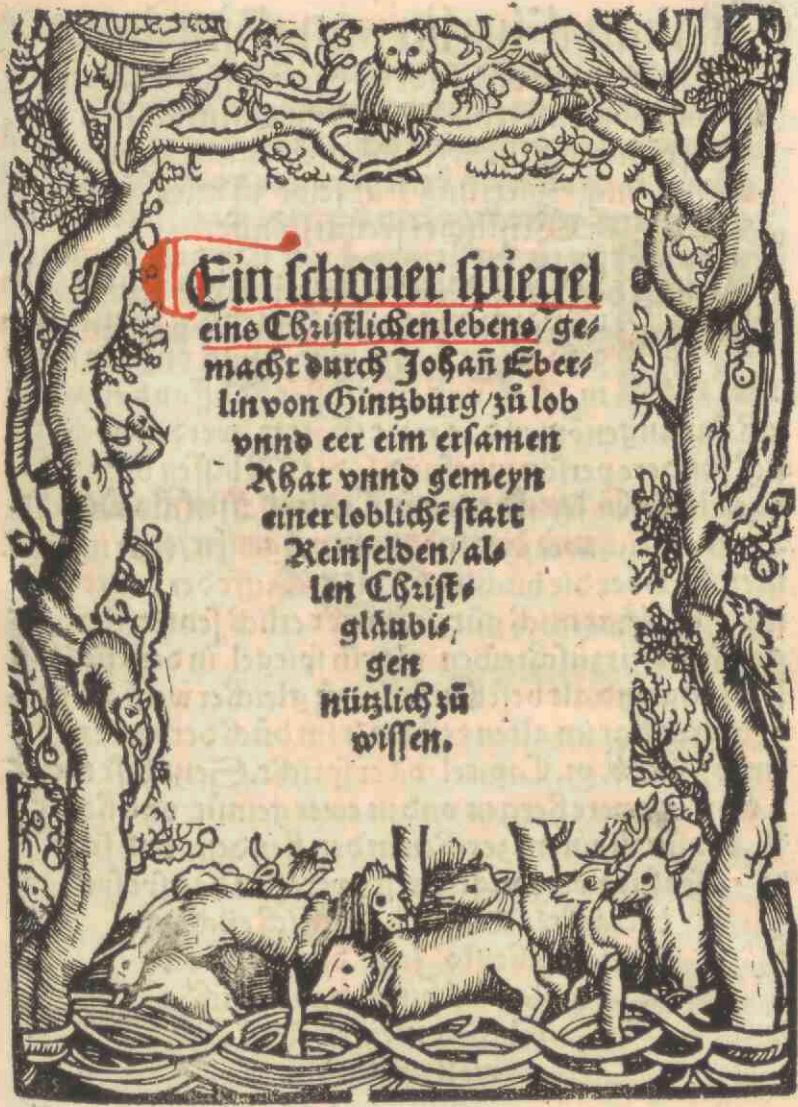 Ein ſchoner ſpiegel
eins Chriſtlichen lebens/ge⸗
macht durch Johan̄ Eber⸗
lin von Gintzburg/zů lob
vnnd eer eim erſamen
Rhat vnnd gemeyn
einer loblichē ſtatt
Reinfelden/al⸗
len Chriſt⸗
gläubi⸗
gen
nützlich zů
wiſſen.